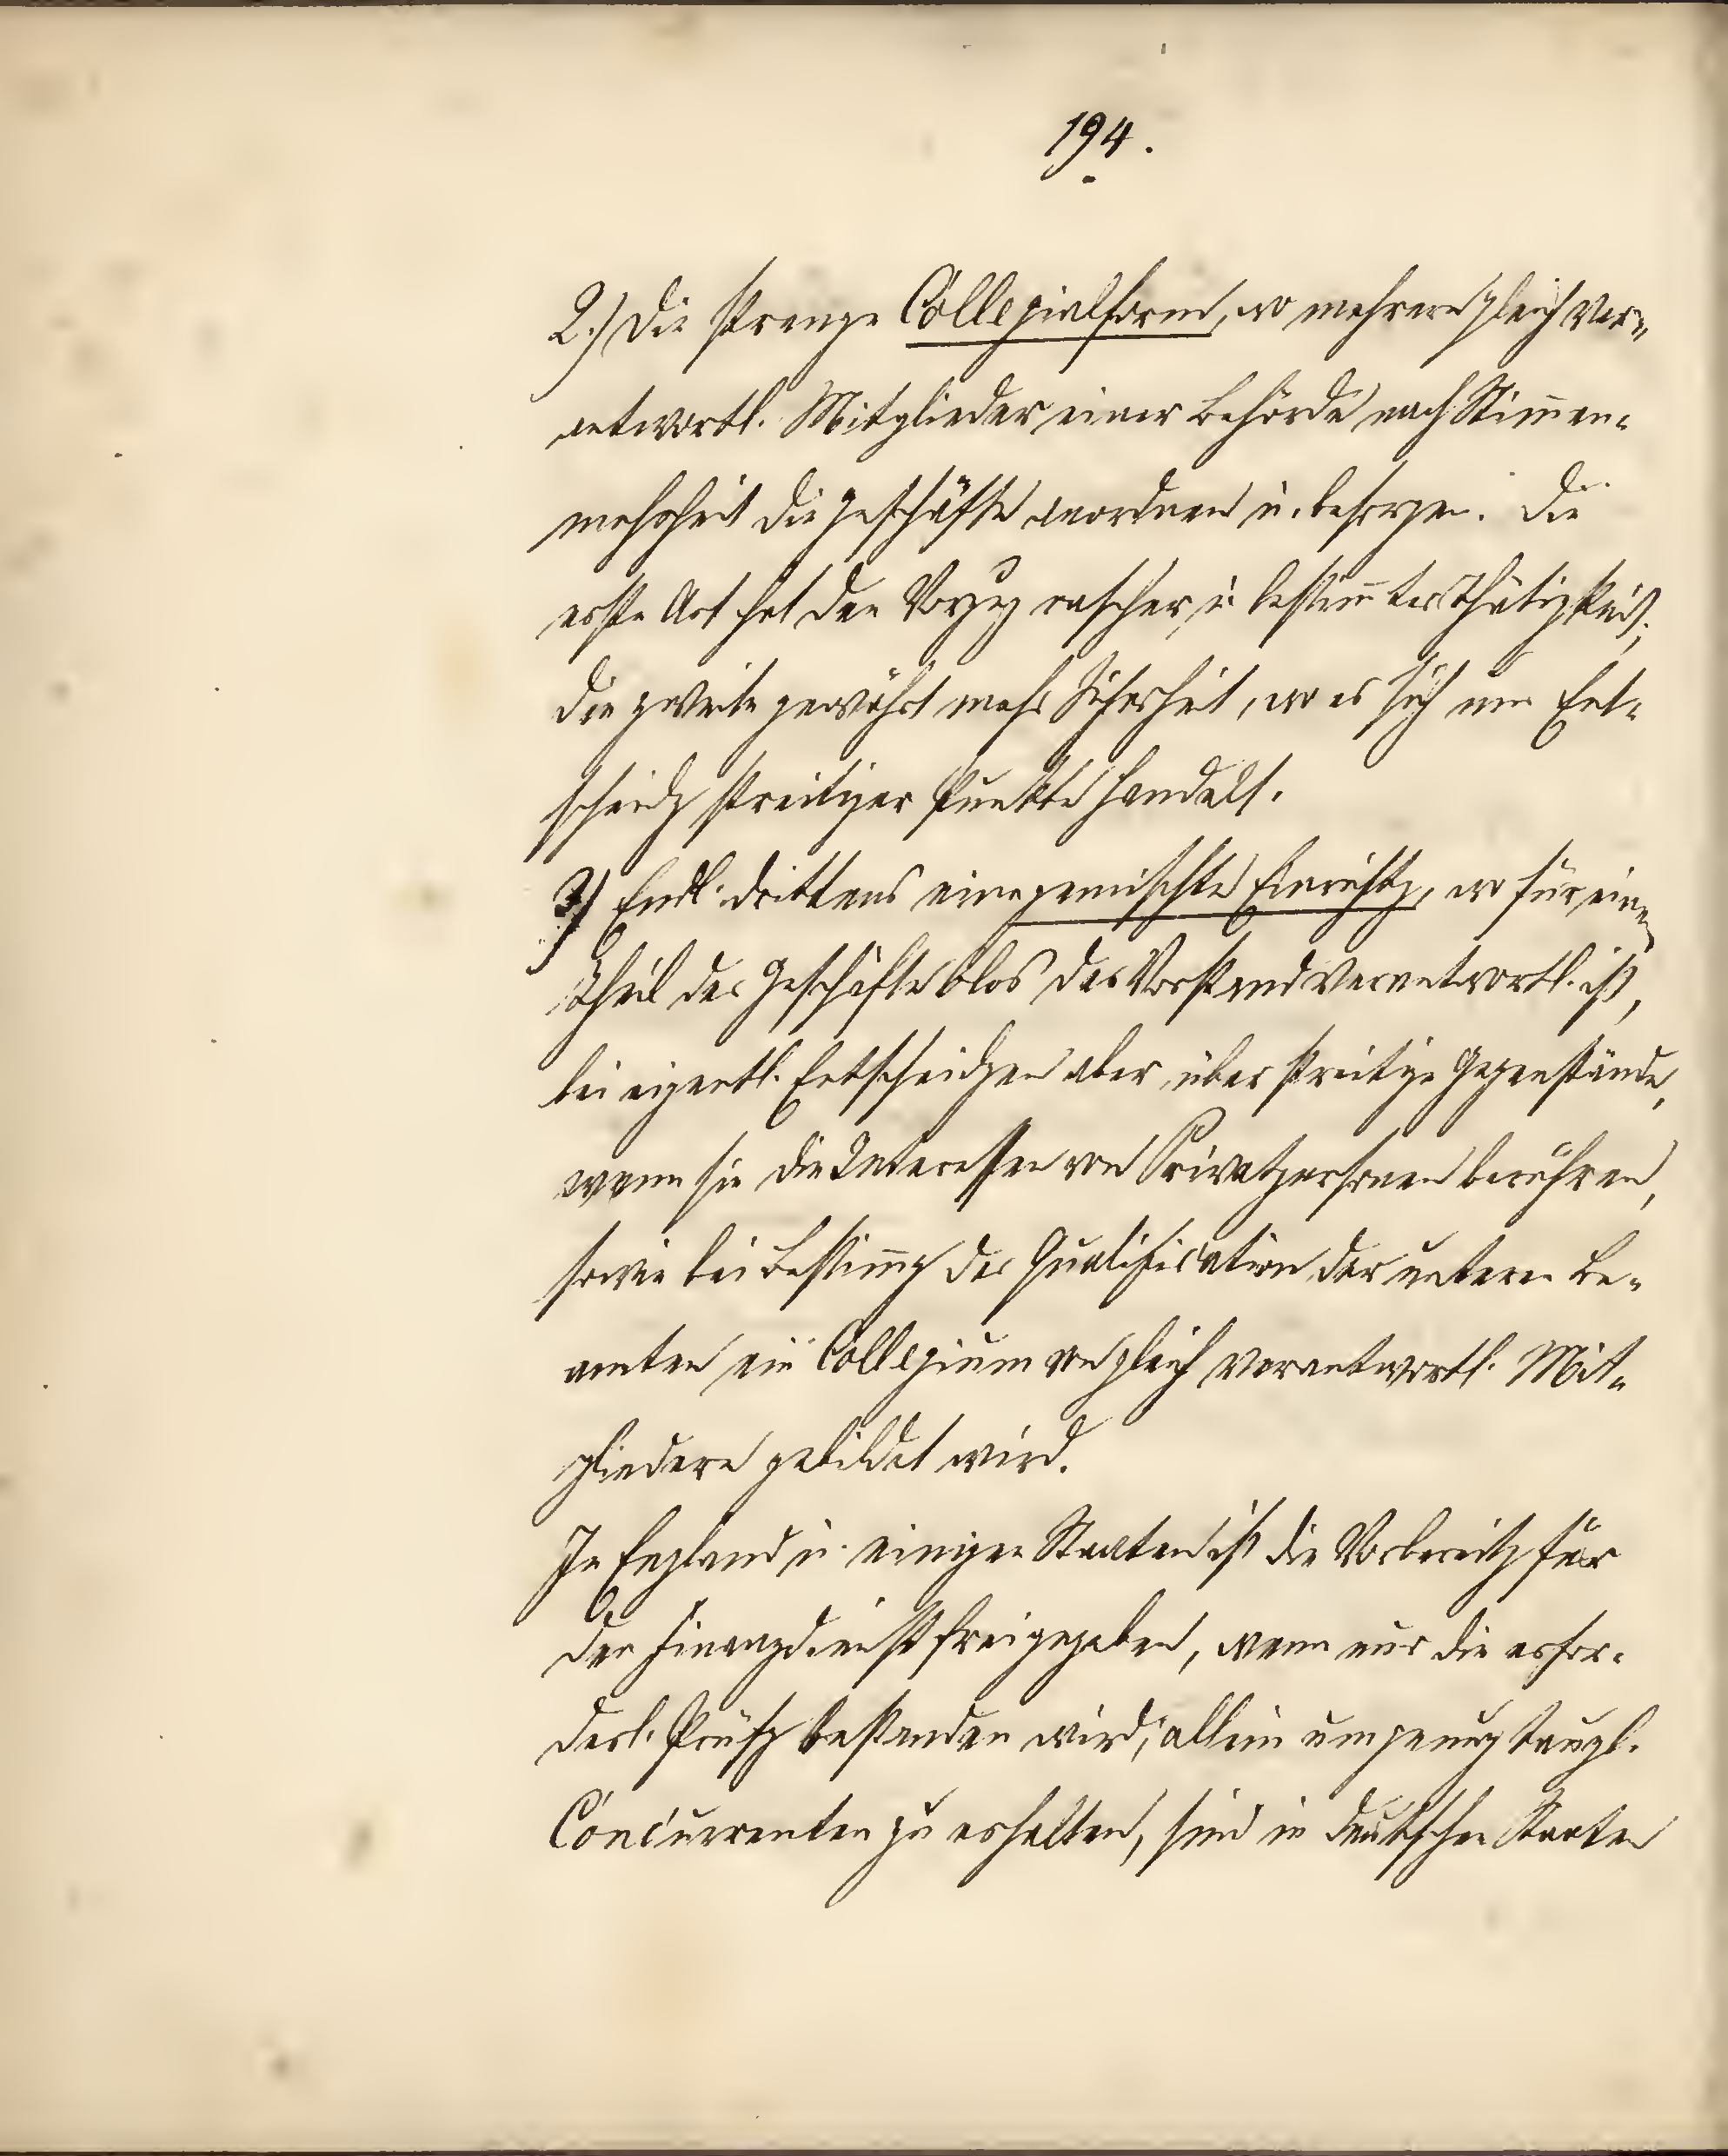 194.
2.) Die strenge Collegialform, wo mehrere gleich ver-
antwortl. Mitglieder einer Behörde nach Stim̄en-
mehrheit die Geschäfte anordnen u. besorgen. Die
erste Art hat den Vorzug rascher u. bestim̄ter Thätigkeit;
die zweite gewährt mehr Sicherheit, wo es sich um Ent-
scheidg streitiger Punkte handelt.
3) Endl. drittens eine gemischte Einrichtg, wo für einen
Theil der Geschäfte blos der Vorstand verantwortl. ist,
bei eigentl. Entscheidgen aber über streitige Gegenstände,
wenn sie die Interessen von Privatpersonen berühren,
sowie bei Bestim̄g der Qualification der untern Be-
amten ein Collegium von gleich verantwortl. Mit-
gliedern gebildet wird.
In England u. einigen Staaten ist die Vorbereitg für
den Finanzdienst freigegeben, wenn nur die erfor-
derl. Prüfg bestanden wird; allein um genug taugl.
Concurrenten zu erhalten, sind in deutschen Staaten